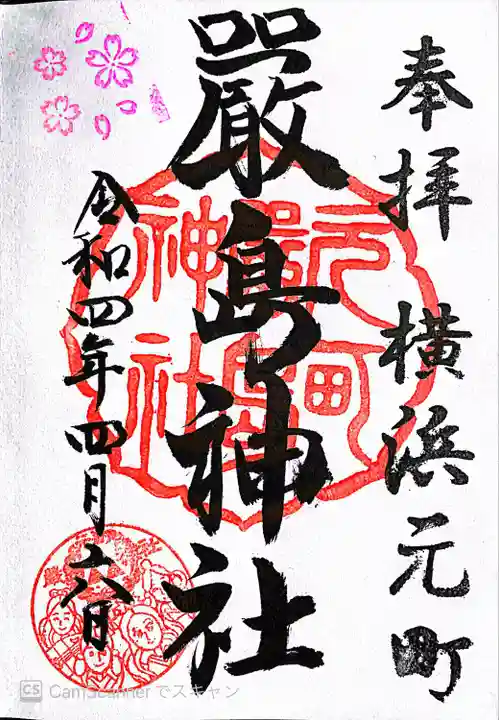 奉拝 横浜元町
嚴島神社
令和四年四月六日
元町
嚴島
神社
CS CamScanner でスキャン